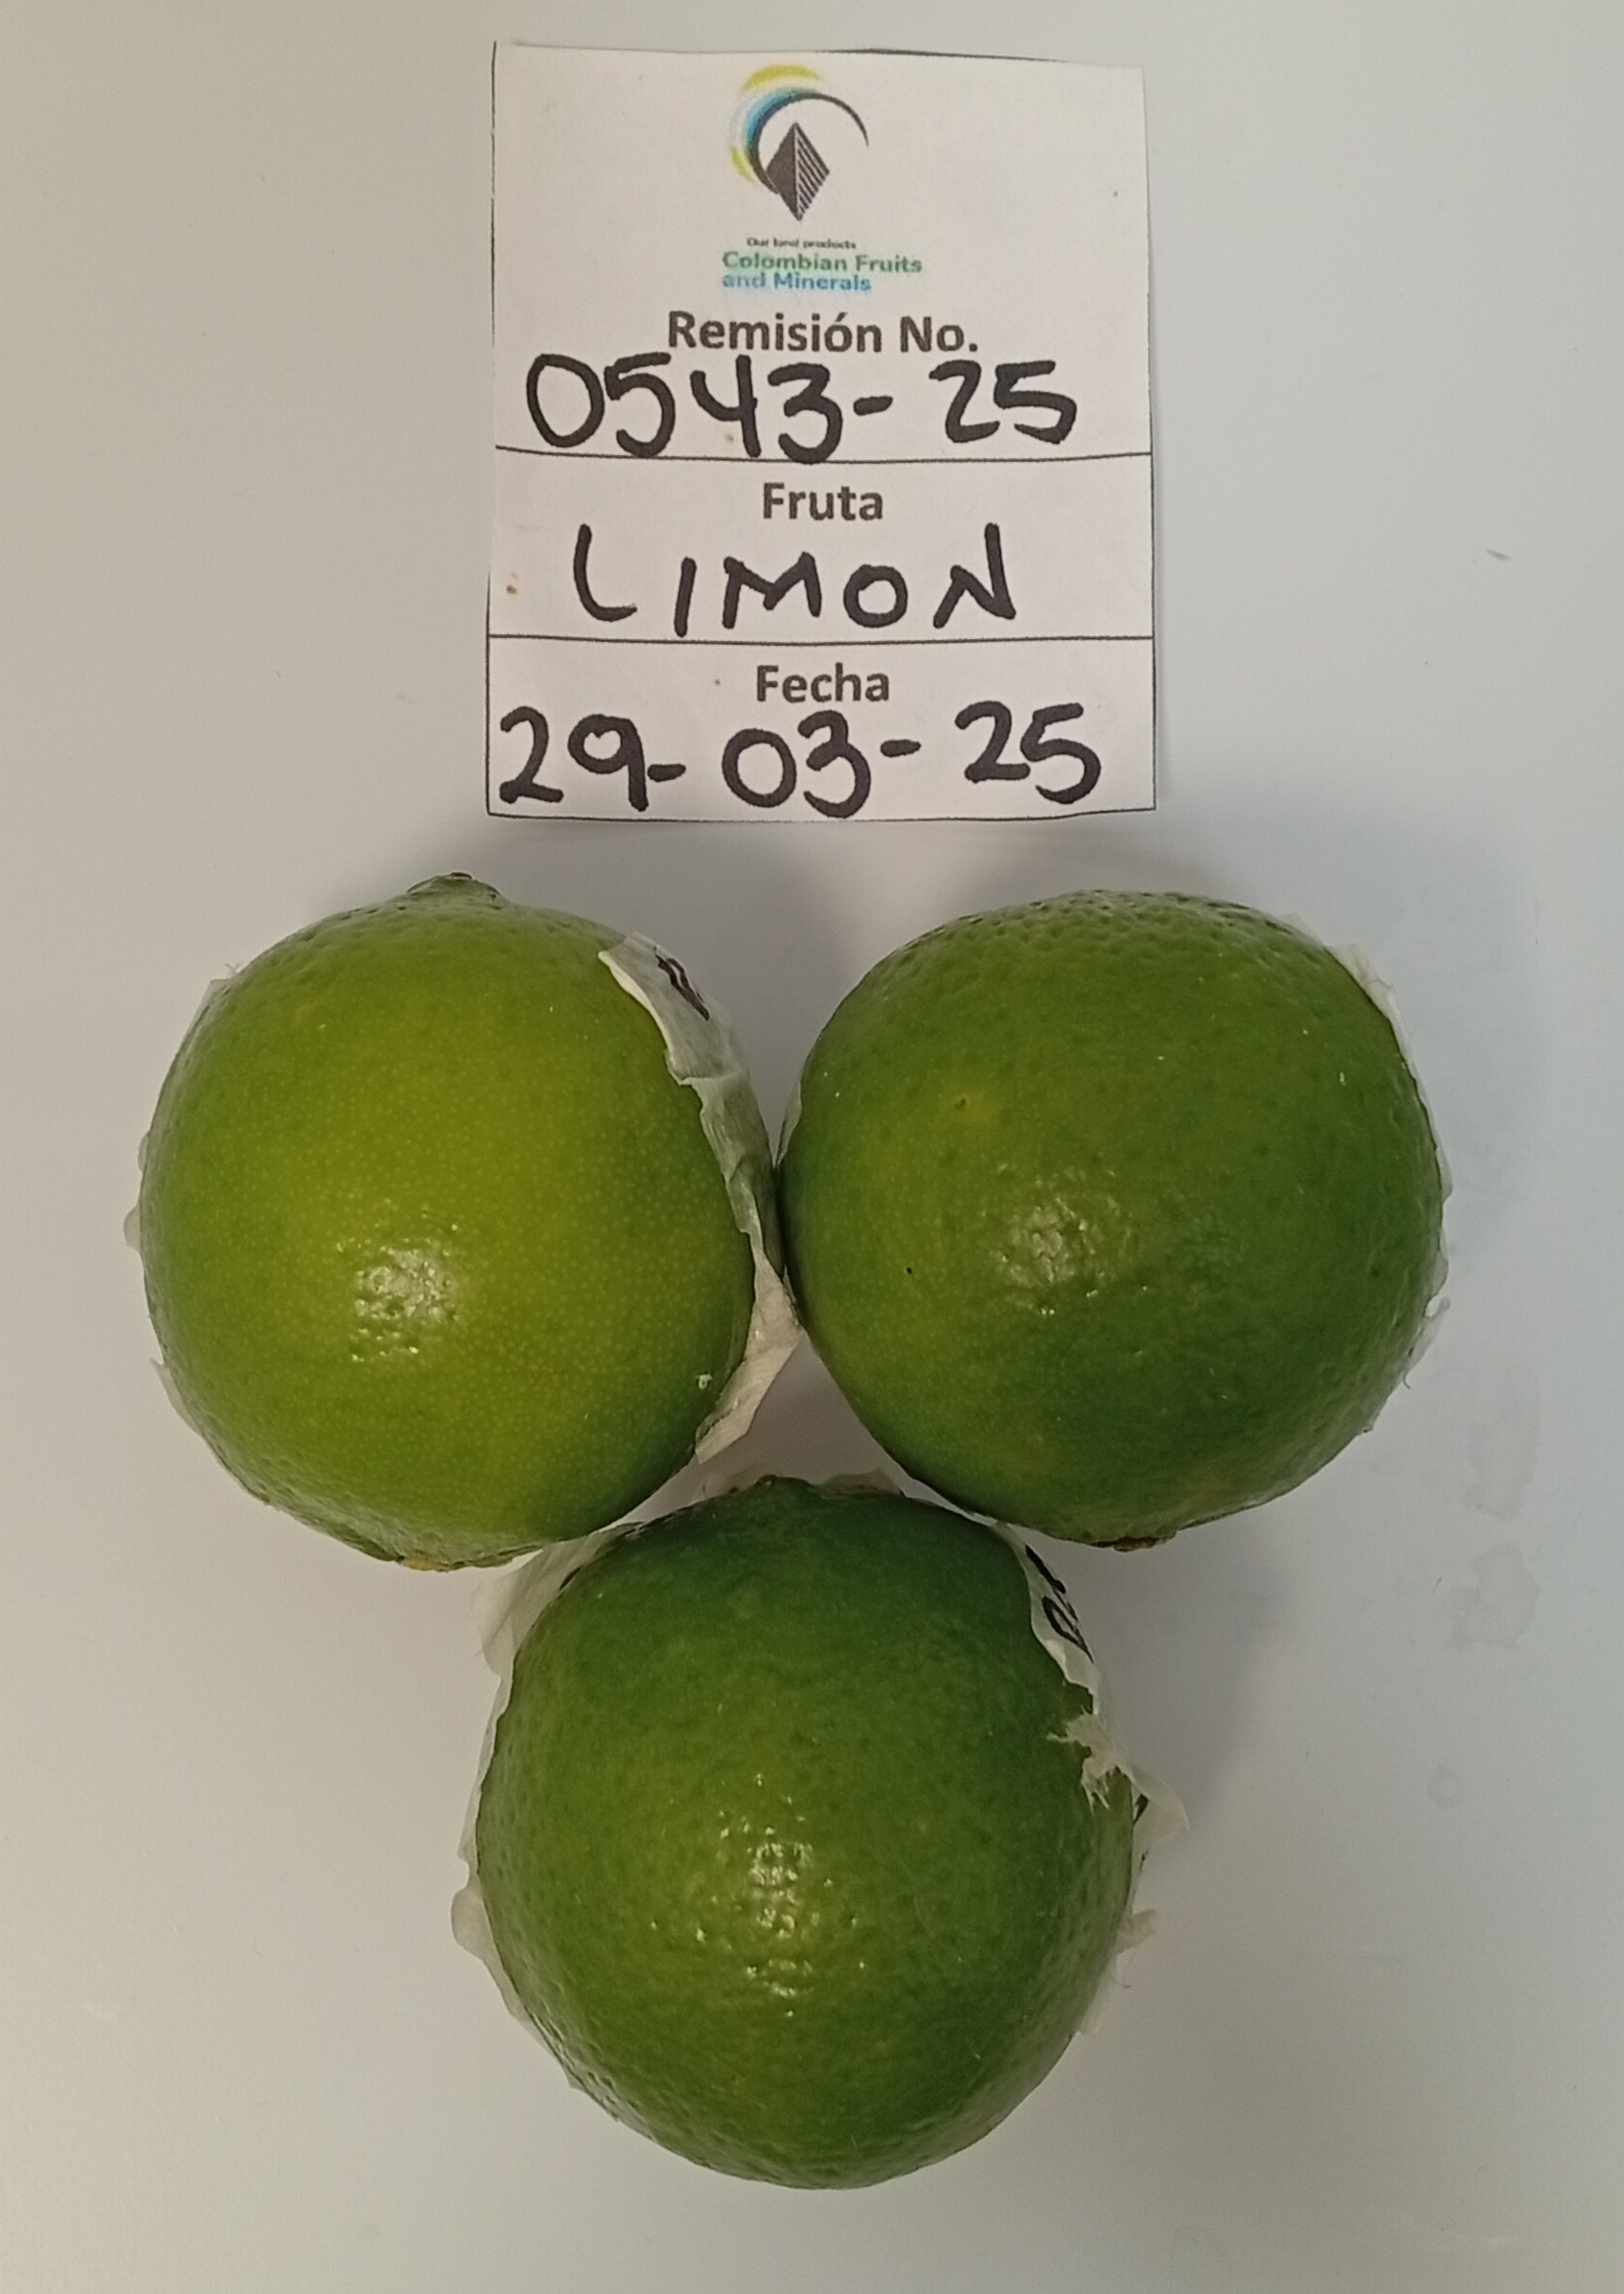 Our land products
Colombian Fruits
and Minerals
Remisión No.
0543-25
Fruta
LIMON
Fecha
29-03-25